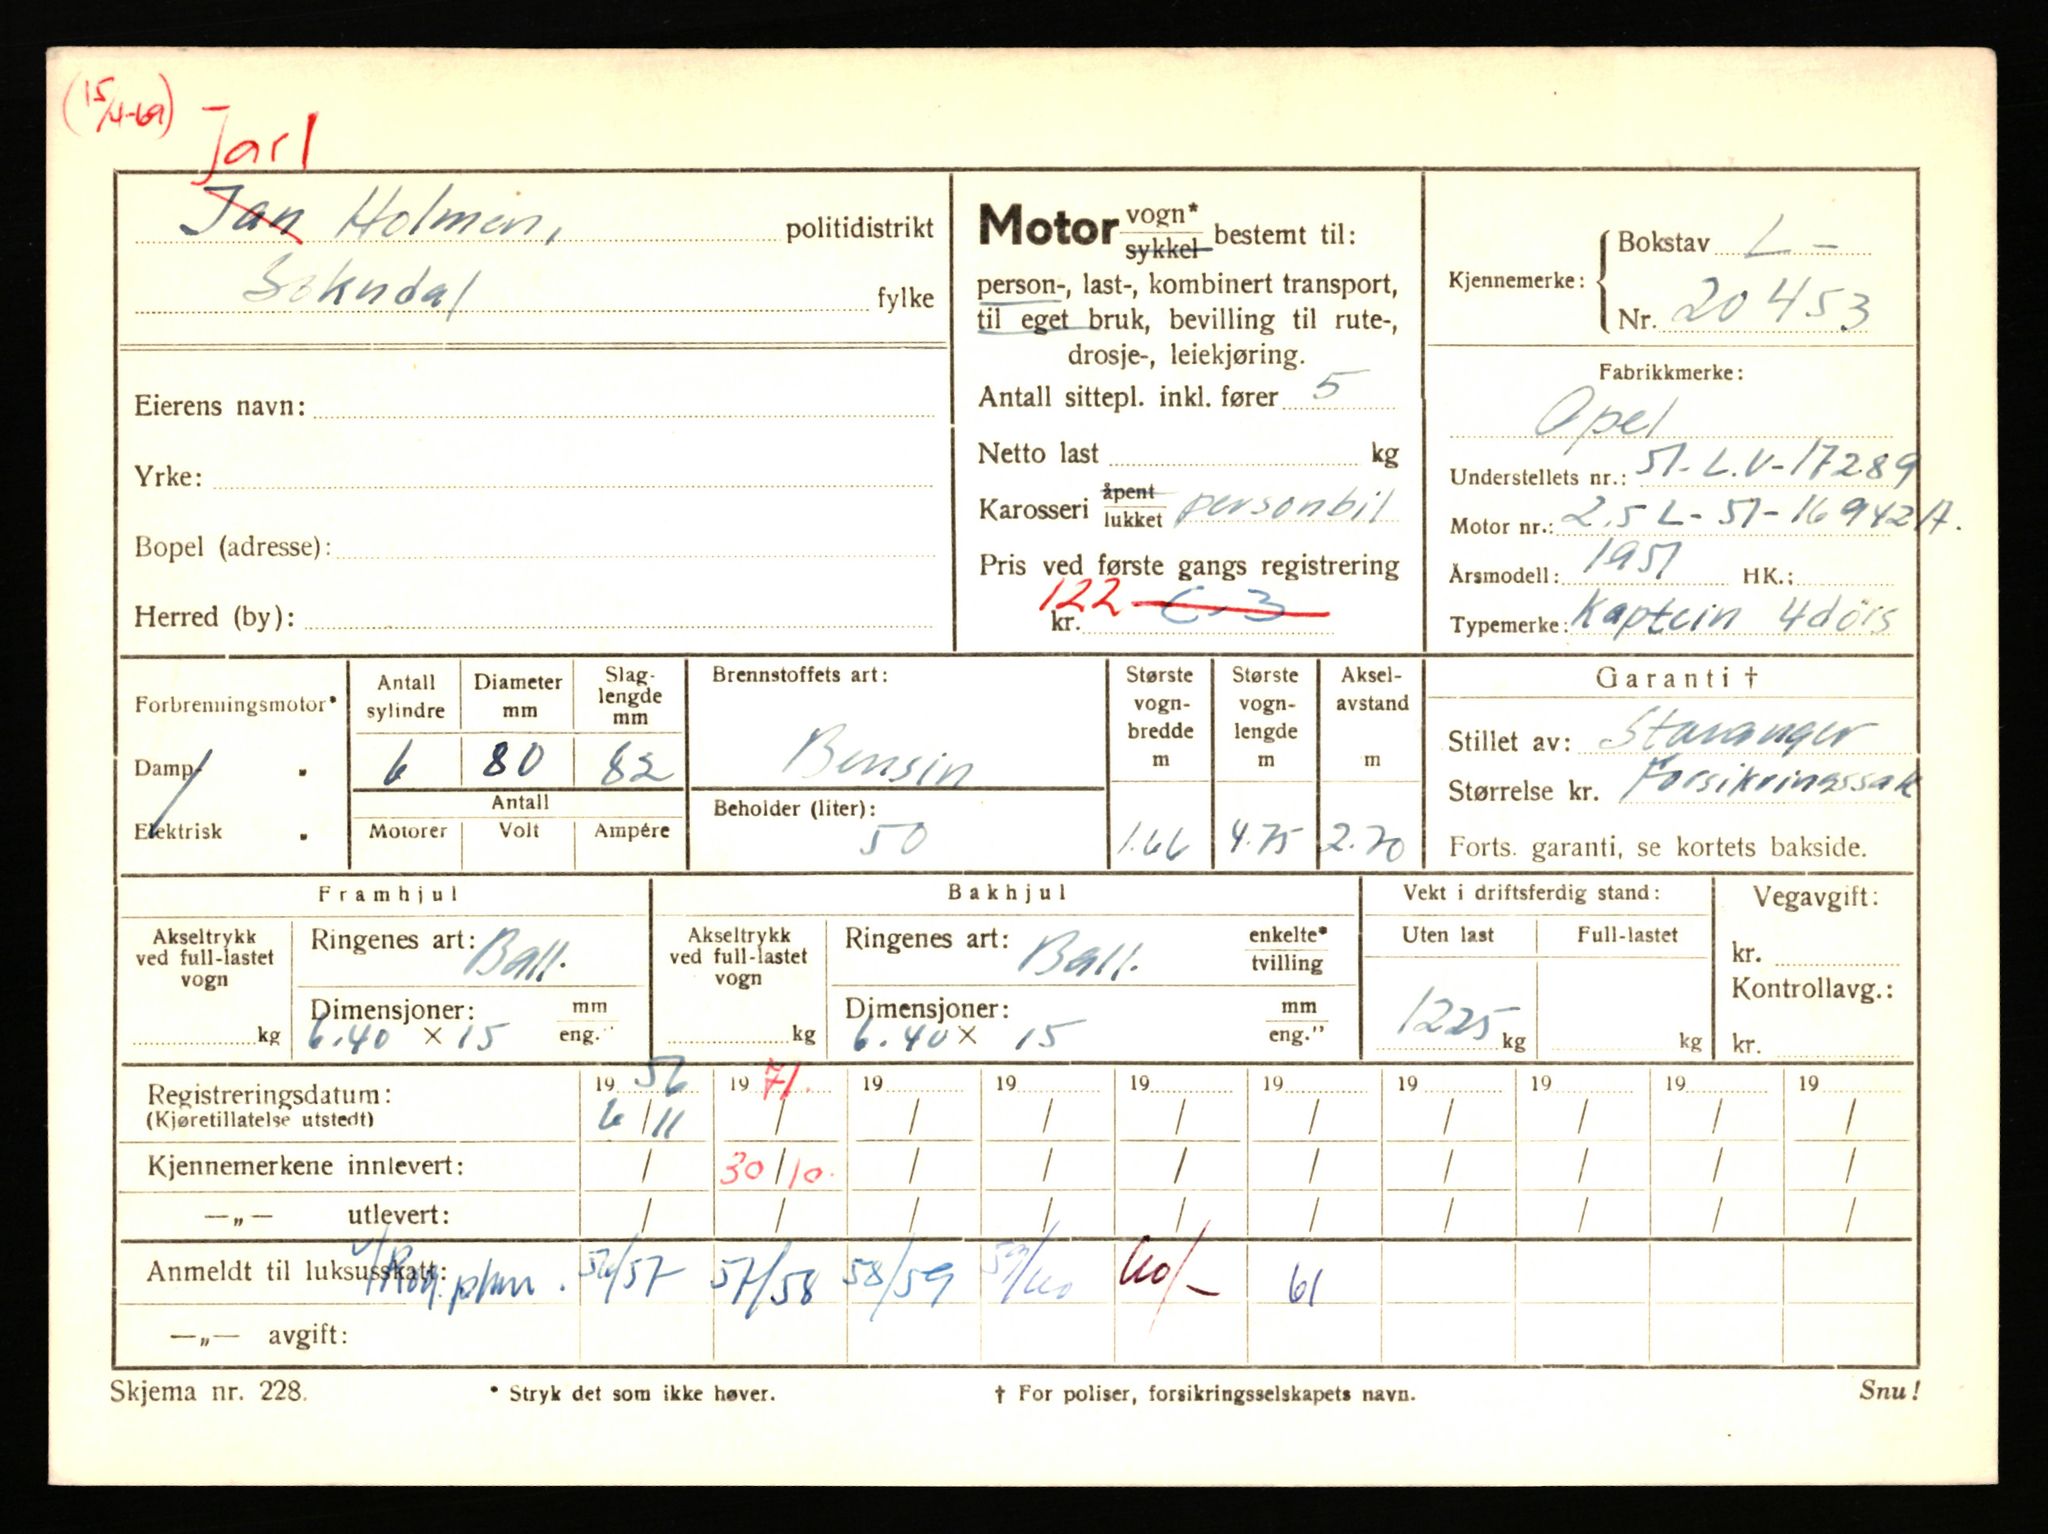 (15/4-69)
Jarl
Jan Holmen, politidistrikt
Sokndal fylke
Eierens navn:
Yrke:
Bopel (adresse):
Herred (by):
Motor vogn* / sykkel bestemt til:
person-, last-, kombinert transport,
til eget bruk, bevilling til rute-,
drosje-, leiekjøring.
Antall sittepl. inkl. fører 5
Netto last kg
Karosseri åpent / lukket personbil
Pris ved første gangs registrering
kr. 122 C-3
Kjennemerke: Bokstav L-
Nr. 20453
Fabrikkmerke:
Opel
Understellets nr.: 51-L.V-17289
Motor nr.: 2.5L-51-16942A.
Årsmodell: 1951 HK.:
Typemerke: Kaptein 4dörs
Forbrenningsmotor*
Damp- "
Elektrisk "
Antall sylindre Diameter mm Slaglengde mm
6 80 82
Antall
Motorer Volt Ampére
Brennstoffets art:
Bensin
Beholder (liter):
50
Største vogn-bredde m
1.66
Største vogn-lengde m
4.75
Aksel-avstand m
2.70
Garanti †
Stillet av: Stavanger
Størrelse kr. Forsikringssak
Forts. garanti, se kortets bakside.
Framhjul
Akseltrykk ved full-lastet vogn kg
Ringenes art: Ball.
Dimensjoner: mm / eng."
6.40 × 15
Bakhjul
Akseltrykk ved full-lastet vogn kg
Ringenes art: Ball. enkelte* / tvilling
Dimensjoner: mm / eng."
6.40 × 15
Vekt i driftsferdig stand:
Uten last Full-lastet
1225 kg kg
Vegavgift:
kr.
Kontrollavg.:
kr.
Registreringsdatum: 1956 1971. 19 19 19 19 19 19 19 19
(Kjøretillatelse utstedt) 6/11 / / / / / / / / /
Kjennemerkene innlevert: / 30/10. / / / / / / / /
—„— utlevert: / / / / / / / / / /
Anmeldt til luksusskatt: 56/57 57/58 58/59 59/60 60/- 61
—„— avgift:
Skjema nr. 228. * Stryk det som ikke høver. † For poliser, forsikringsselskapets navn. Snu!